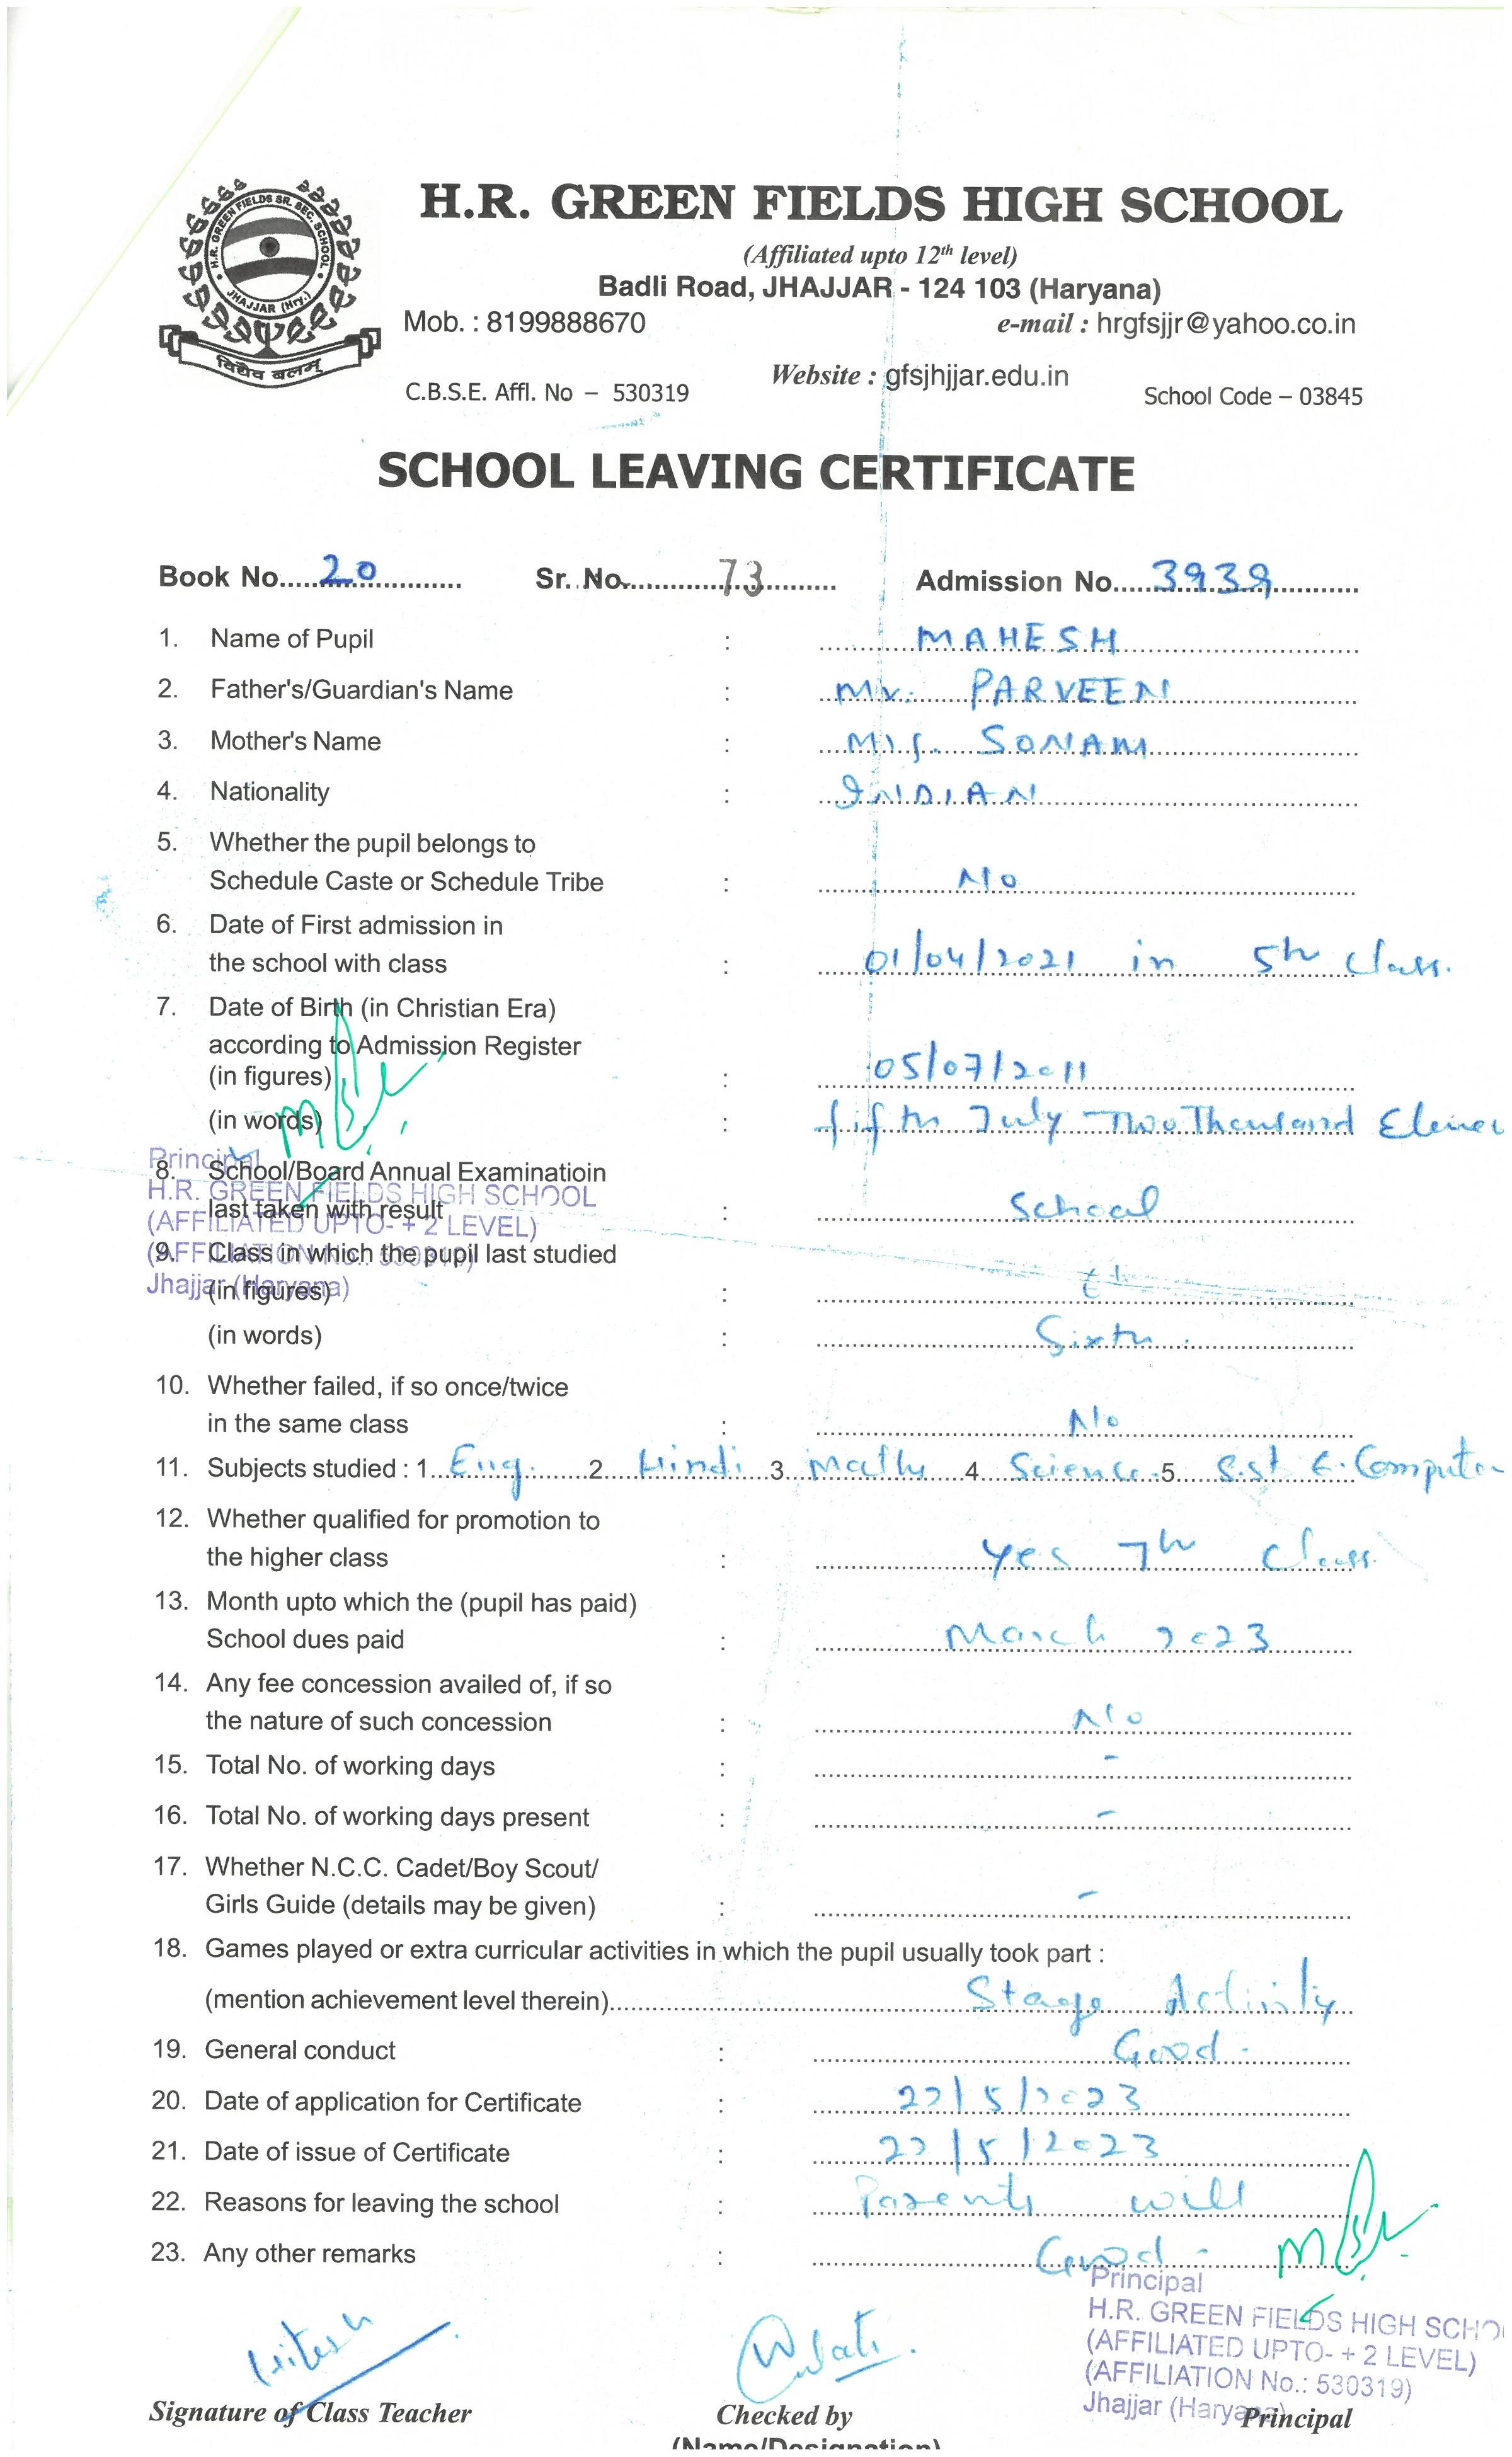 H.R. GREEN FIELDS SR. SEC. SCHOOL
JHAJJAR (Hry.)
विद्यैव बलम्
H.R. GREEN FIELDS HIGH SCHOOL
(Affiliated upto 12th level)
Badli Road, JHAJJAR - 124 103 (Haryana)
Mob. : 8199888670 e-mail : hrgfsjjr@yahoo.co.in
Website : gfsjhjjar.edu.in
C.B.S.E. Affl. No – 530319 School Code – 03845
SCHOOL LEAVING CERTIFICATE
Book No. 20 Sr. No. 73 Admission No. 3939
1. Name of Pupil : MAHESH
2. Father's/Guardian's Name : Mr. PARVEEN
3. Mother's Name : Mrs. SONAM
4. Nationality : INDIAN
5. Whether the pupil belongs to
Schedule Caste or Schedule Tribe : No
6. Date of First admission in
the school with class : 01/04/2021 in 5th Class.
7. Date of Birth (in Christian Era)
according to Admission Register
(in figures) : 05/07/2011
(in words) : fifth July Two Thousand Eleven
Principal
8. School/Board Annual Examinatioin
H.R. GREEN FIELDS HIGH SCHOOL
last taken with result : School
(AFFILIATED UPTO- + 2 LEVEL)
9. Class in which the pupil last studied
(AFFILIATION No.: 530319)
Jhajjar (Haryana)
(in figures) :
(in words) : Sixth.
10. Whether failed, if so once/twice
in the same class : No
11. Subjects studied : 1. Eng. 2. Hindi 3. Maths 4. Science 5. S.st 6. Computer
12. Whether qualified for promotion to
the higher class : Yes 7th Class.
13. Month upto which the (pupil has paid)
School dues paid : March 2023
14. Any fee concession availed of, if so
the nature of such concession : No
15. Total No. of working days : -
16. Total No. of working days present : -
17. Whether N.C.C. Cadet/Boy Scout/
Girls Guide (details may be given) : -
18. Games played or extra curricular activities in which the pupil usually took part :
(mention achievement level therein) Stage Activity
19. General conduct : Good.
20. Date of application for Certificate : 22/5/2023
21. Date of issue of Certificate : 22/5/2023
22. Reasons for leaving the school : Parents will
23. Any other remarks : Good -
Principal
H.R. GREEN FIELDS HIGH SCHO
(AFFILIATED UPTO- + 2 LEVEL)
(AFFILIATION No.: 530319)
Jhajjar (Haryana)
Signature of Class Teacher Checked by Principal
(Name/Designation)